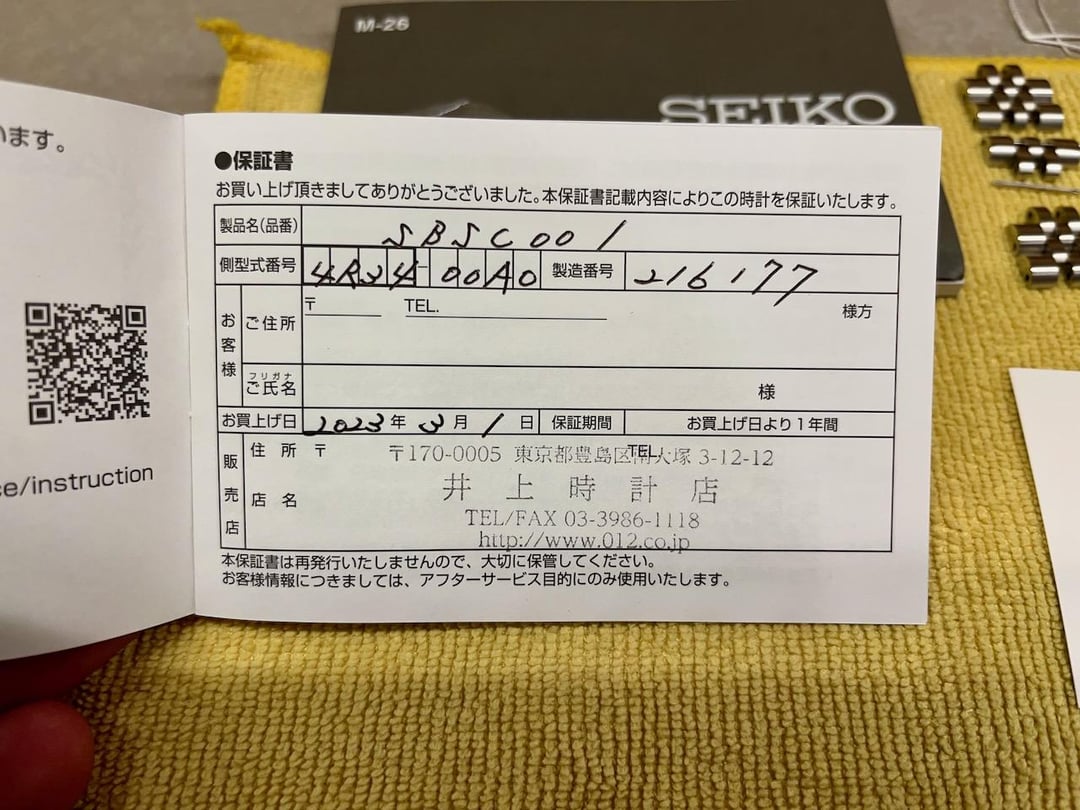 M-26
SEIKO
います。
●保証書
お買い上げ頂きましてありがとうございました。本保証書記載内容によりこの時計を保証いたします。
製品名(品番) SBSC001
側型式番号 4R34-00A0 製造番号 216177
お客様 ご住所 〒 TEL. 様方
フリガナ
ご氏名 様
お買上げ日 2023年 3月 1日 保証期間 お買上げ日より1年間
販売店 住所 〒 TEL.
〒170-0005 東京都豊島区南大塚 3-12-12
店名 井上時計店
TEL/FAX 03-3986-1118
http://www.012.co.jp
本保証書は再発行いたしませんので、大切に保管してください。
お客様情報につきましては、アフターサービス目的にのみ使用いたします。
se/instruction